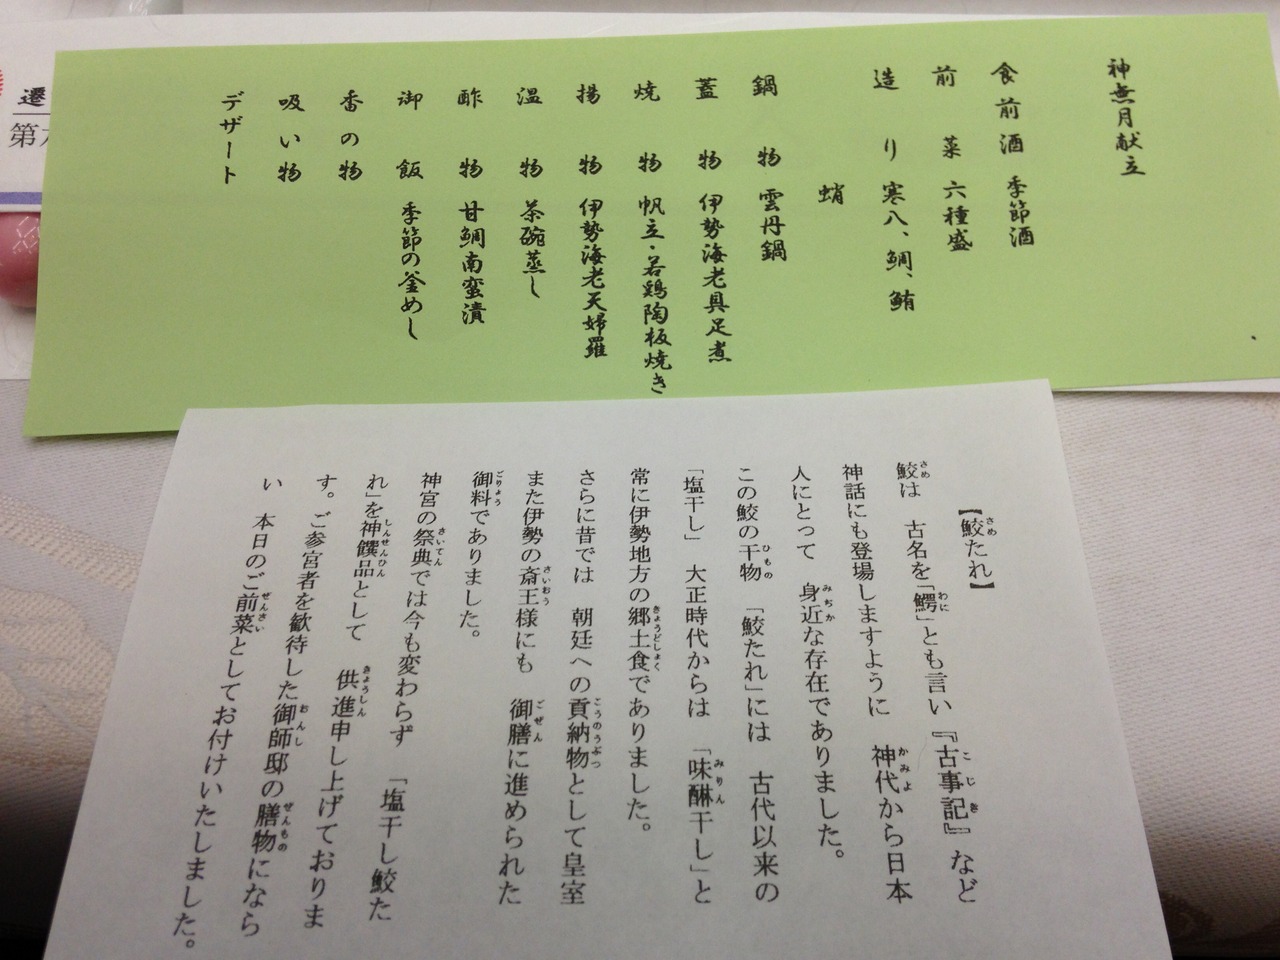 神無月献立
食前酒 季節酒
前菜 六種盛
造り 寒八、鯛、鮪
蛸
鍋物 雲丹鍋
蓋物 伊勢海老具足煮
焼物 帆立・若鶏陶板焼き
揚物 伊勢海老天婦羅
温物 茶碗蒸し
酢物 甘鯛南蛮漬
御飯 季節の釜めし
香の物
吸い物
デザート
遷
第六
【鮫たれ】
鮫は 古名を「鰐」とも言い『古事記』など
神話にも登場しますように 神代から日本
人にとって 身近な存在でありました。
この鮫の干物 「鮫たれ」には 古代以来の
「塩干し」 大正時代からは 「味醂干し」と
常に伊勢地方の郷土食でありました。
さらに昔では 朝廷への貢納物として皇室
また伊勢の斎王様にも 御膳に進められた
御料でありました。
神宮の祭典では今も変わらず 「塩干し鮫た
れ」を神饌品として 供進申し上げておりま
す。ご参宮者を歓待した御師邸の膳物になら
い 本日のご前菜としてお付けいたしました。